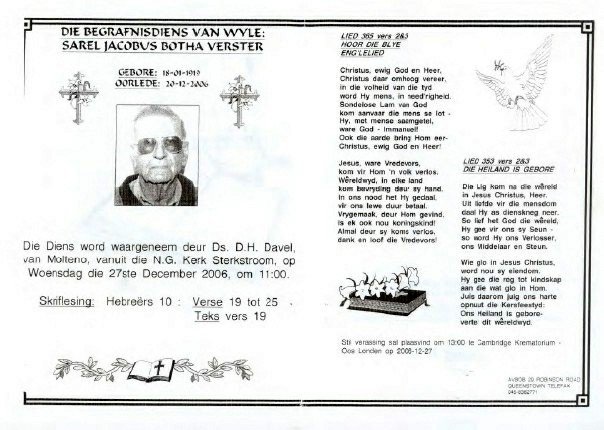 DIE BEGRAFNISDIENS VAN WYLE:
SAREL JACOBUS BOTHA VERSTER
GEBORE: 18-01-1919
OORLEDE: 20-12-2006
Die Diens word waargeneem deur Ds. D.H. Davel,
van Molteno, vanuit die N.G. Kerk Sterkstroom, op
Woensdag die 27ste December 2006, om 11:00.
Skriflesing: Hebreërs 10 : Verse 19 tot 25
Teks vers 19
LIED 365 vers 2&3
HOOR DIE BLYE
ENG'LELIED
Christus, ewig God en Heer,
Christus daar omhoog vereer,
in die volheid van die tyd
word Hy mens, in need'righeid.
Sondelose Lam van God
kom aanvaar die mens se lot -
Hy, met mense saamgetel,
ware God - Immanuel!
Ook die aarde bring Hom eer-
Christus, ewig God en Heer!
Jesus, ware Vredevors,
kom vir Hom 'n volk verlos.
Wêreldwyd, in elke land
kom bevryding deur sy hand.
In ons nood het Hy gedaal,
vir ons lewe duur betaal.
Vrygemaak, deur Hom gevind,
is ek ook nou koningskind!
Almal deur sy koms verlos,
dank en loof die Vredevors!
LIED 353 vers 2&3
DIE HEILAND IS GEBORE
Die Lig kom na die wêreld
in Jesus Christus, Heer.
Uit liefde vir die mensdom
daal Hy as dienskneg neer.
So lief het God die wêreld,
Hy gee vir ons sy Seun -
so word Hy ons Verlosser,
ons Middelaar en Steun.
Wie glo in Jesus Christus,
word nou sy eiendom.
Hy gee die reg tot kindskap
aan die wat glo in Hom.
Juis daarom juig ons harte
opnuut die Kersfeestyd:
Ons Heiland is gebore-
verte dit wêreldwyd.
Stil verassing sal plaasvind om 13:00 te Cambridge Krematorium -
Oos Londen op 2006-12-27
AVBOB 20 ROBINSON ROAD
QUEENSTOWN TELEFAK